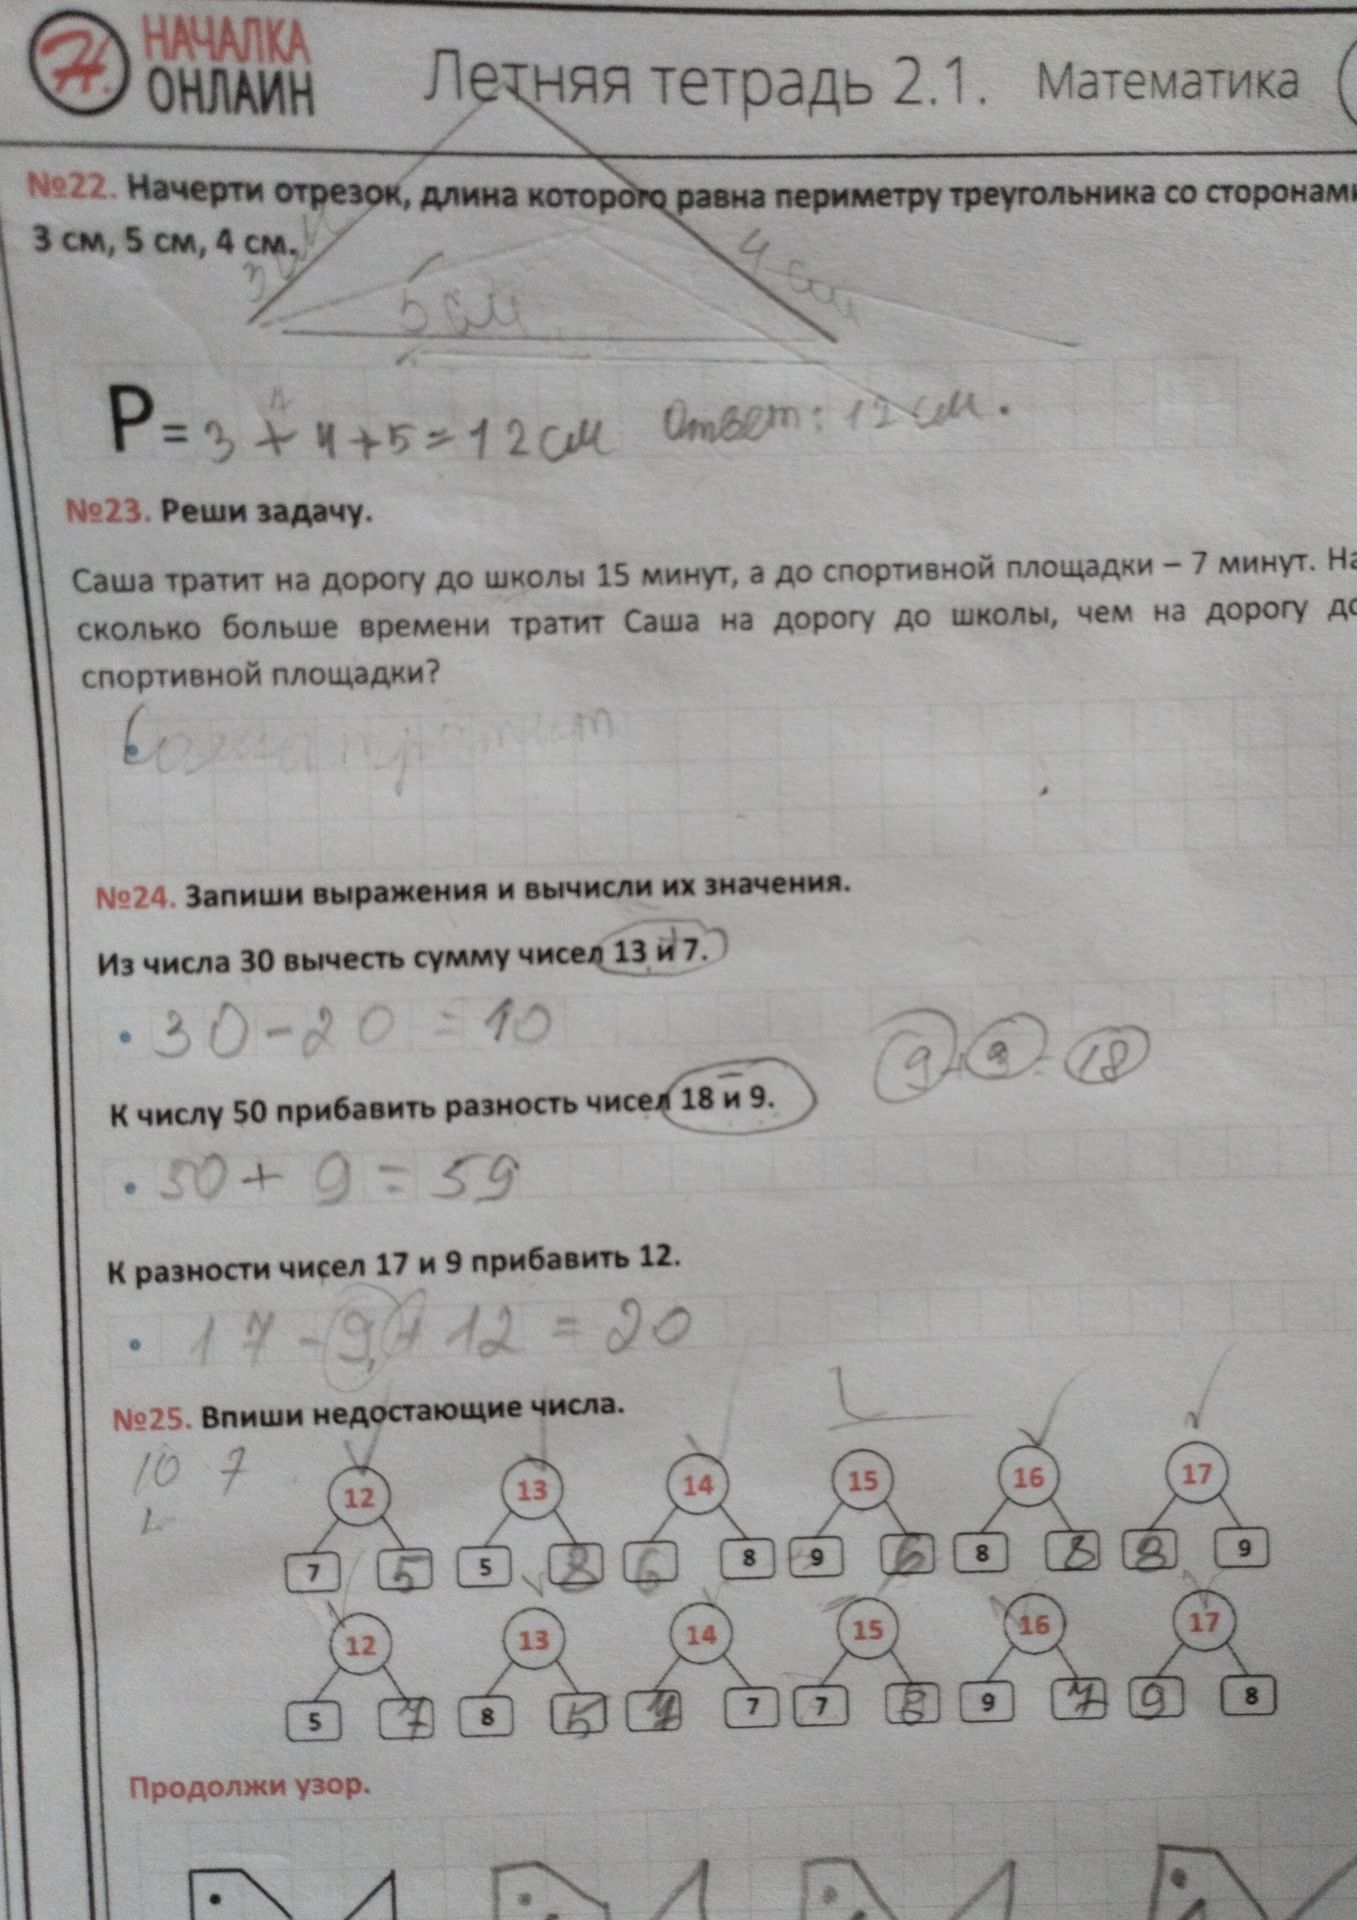 НАЧАЛКА
ОНЛАЙН
Летняя тетрадь 2.1. Математика
№22. Начерти отрезок, длина которого равна периметру треугольника со сторонами
3 см, 5 см, 4 см.
3 см
5 см
4 см
P = 3 + 4 + 5 = 12 см Ответ: 12 см.
№23. Реши задачу.
Саша тратит на дорогу до школы 15 минут, а до спортивной площадки – 7 минут. На
сколько больше времени тратит Саша на дорогу до школы, чем на дорогу до
спортивной площадки?
№24. Запиши выражения и вычисли их значения.
Из числа 30 вычесть сумму чисел 13 и 7.
• 30 - 20 = 10
9 + 9 = 18
К числу 50 прибавить разность чисел 18 и 9.
• 50 + 9 = 59
К разности чисел 17 и 9 прибавить 12.
• 17 - 9 + 12 = 20
№25. Впиши недостающие числа.
10 7
12 13 14 15 16 17
7 5 5 8 6 8 9 6 8 8 8 9
12 13 14 15 16 17
5 7 8 5 7 7 7 8 9 7 9 8
Продолжи узор.